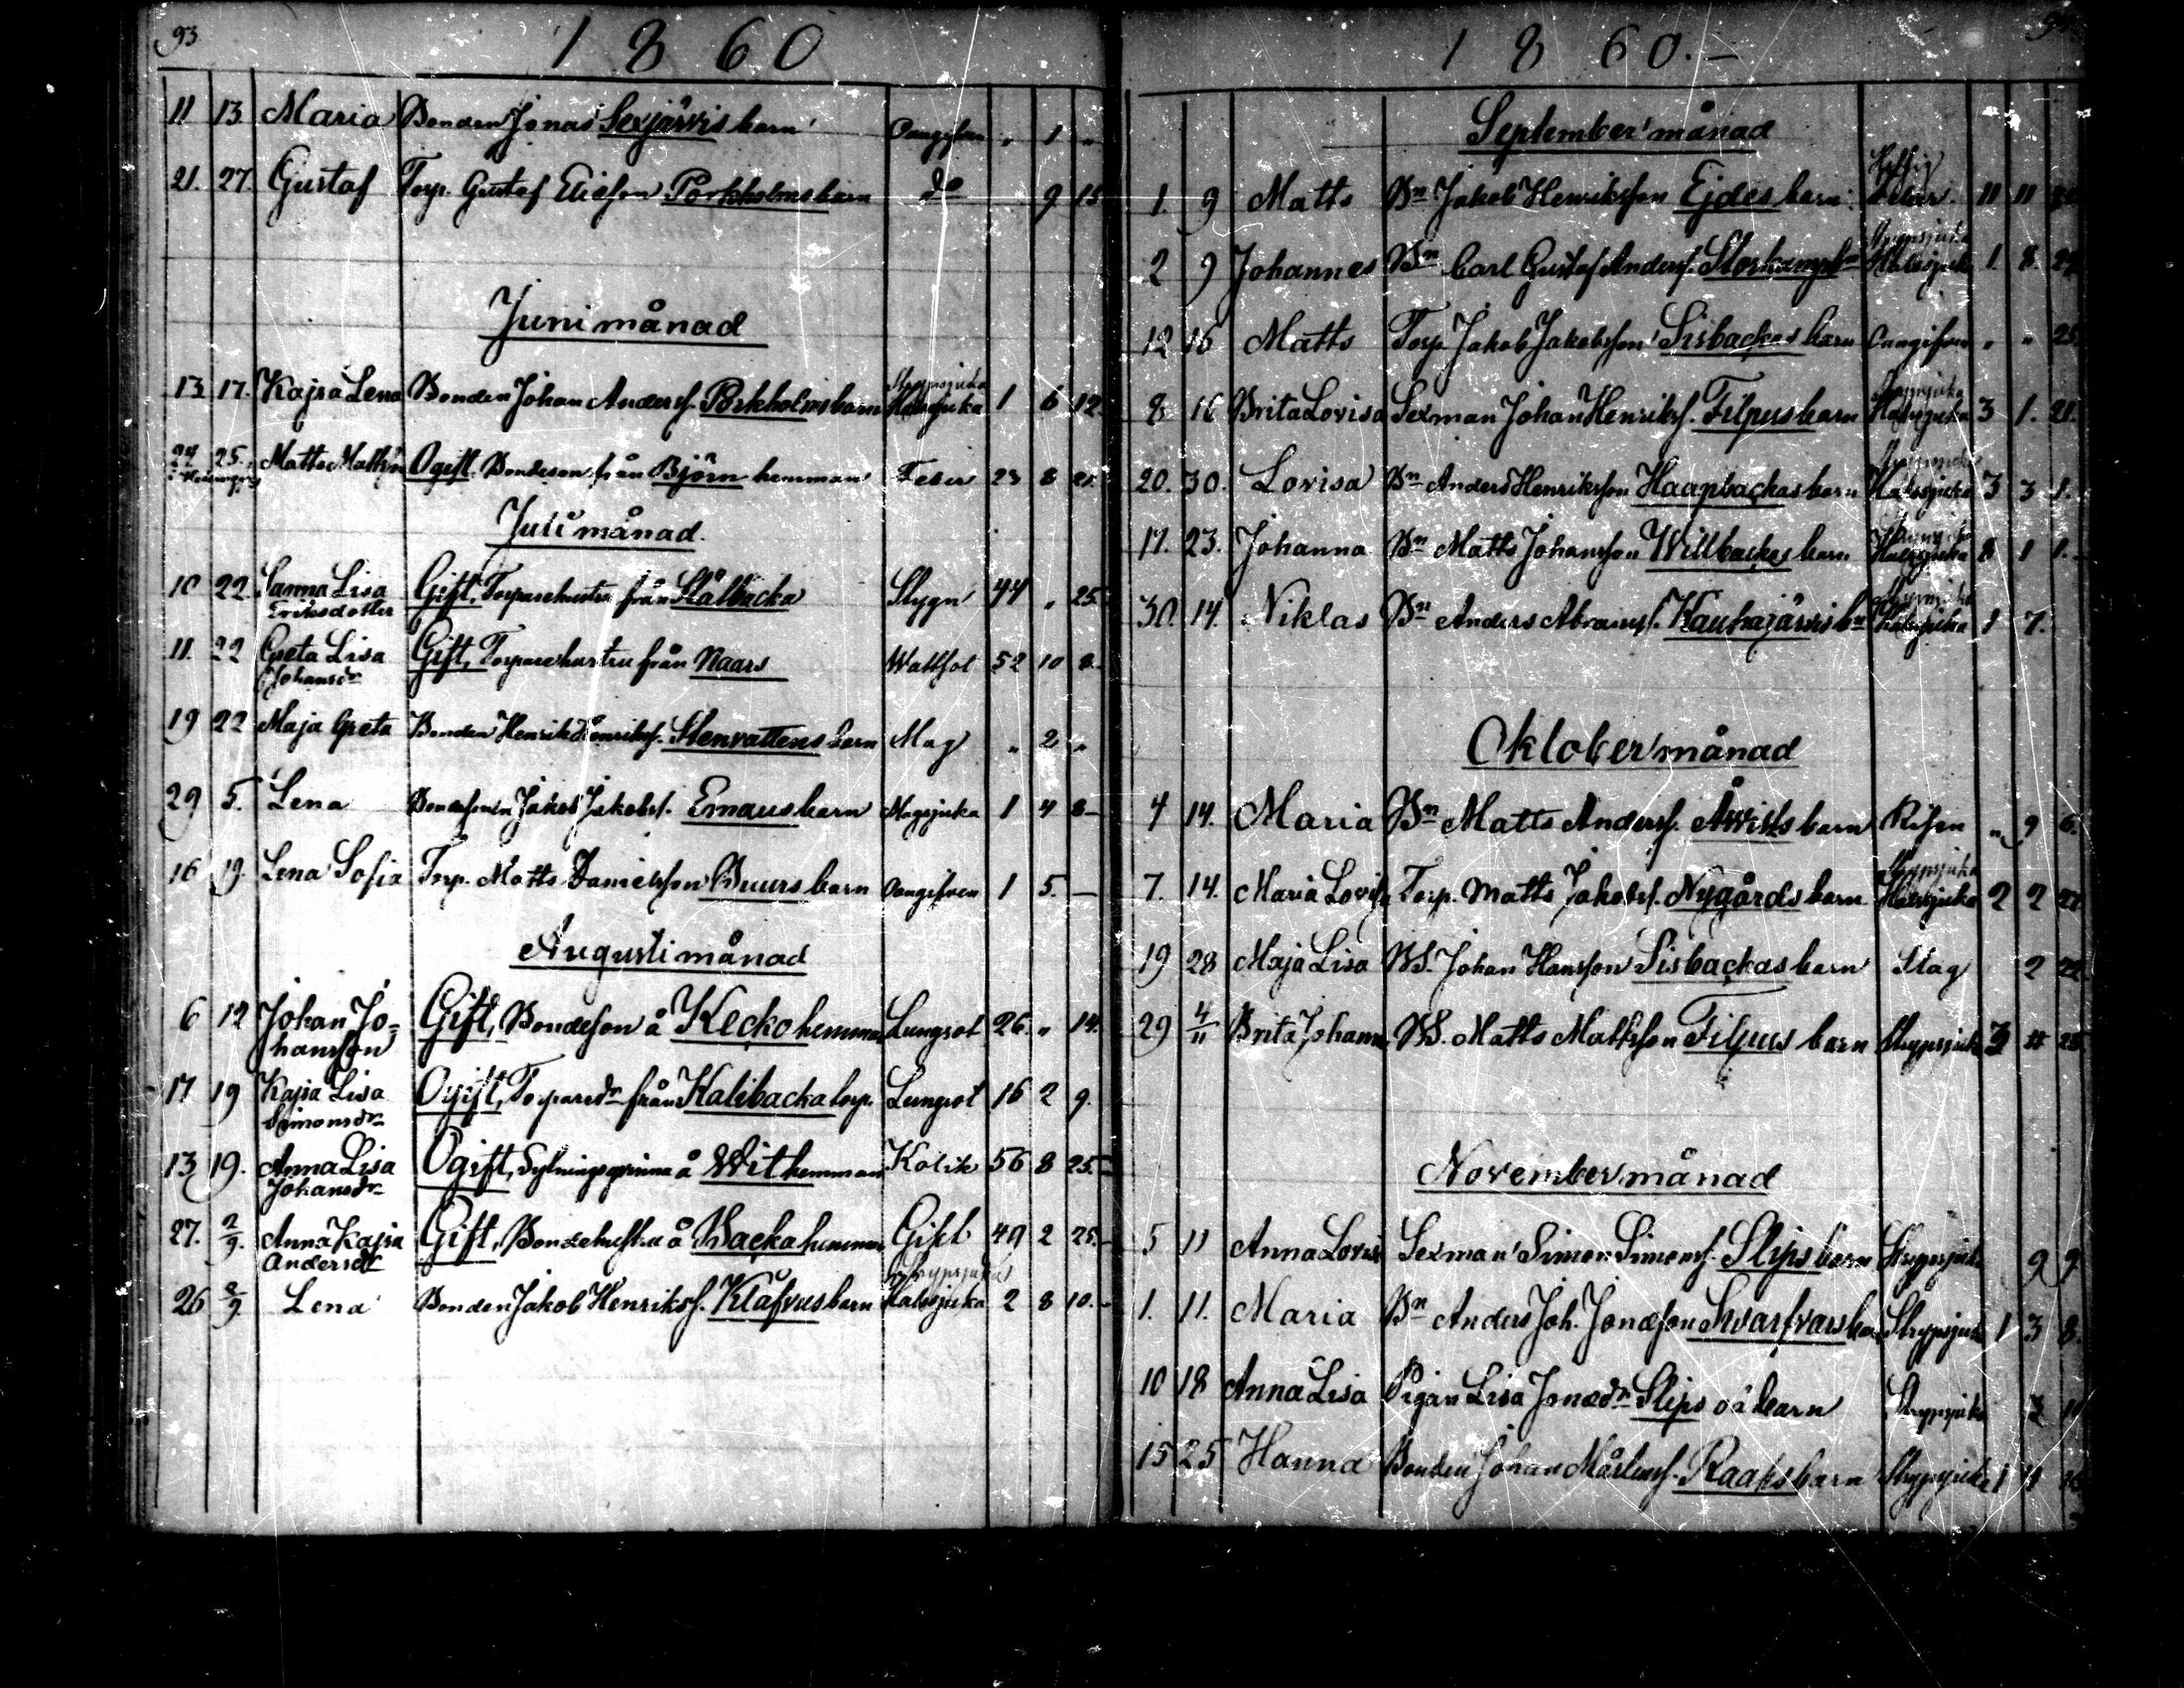 93
1860
11 13 Maria Bonden Jonas Sexjärvis barn Oangifven " 1 "
21. 27. Gustaf Torp. Gustaf Ericsson Porkholms barn do 9 15
Juni månad
13 17. Kajsa Lena Bonden Johan Anderss. Porkholms barn Strypsjuka Halssjuka 1 6 12.
24 25. Matts Mattss Ogift Bondeson från Björn hemman Feber 23 8 21.
Juli månad.
10 22 Sanna Lisa Gift, Torparehustru från Stålbacka Stygn 44 " 25.
Eriksdotter
11. 22 Greta Lisa Gift, Torparehustru från Naars Wattsot 52 10 8.
Johansdr
19 22 Maja Greta Bonden Henrik Henrikss. Stenvattens barn Mag " 2 "
29 5. Lena Bondesonen Jakob Jakobss. Emaus barn Magsjuka 1 4 8
16 19. Lena Sofia Torp. Matts Danielsson Buurs barn Oangifven 1 5. —
Augusti månad
6 12 Johan Jo= Gift, Bondeson å Kecko hemman Lungsot 26. " 14.
hansson
17 19 Kajsa Lisa Ogift, Torparedr från Kalibacka torp. Lungsot 16 2 9.
Simonsdr
13 19. Anna Lisa Ogift, Sytningsqvinna å Wit hemman Kolik 56 8 25.
Johansdr
27. 2/9. Anna Kajsa Gift, Bondehustru å Backa hemman Gikt 49 2 25.
Andersdr
26 2/9 Lena Bonden Jakob Henrikss. Klåfvus barn Strypsjuka Halssjuka 2 8 10.
1860.—
September månad
1. 9 Matts Bn Jakob Henriksson Ejdes barn Häftig Feber 11 11
2 9 Johannes Bn Carl Gustaf Anderss. Storkamp bn Strypsjuka Halssjuka 1. 8.
12 16 Matts Torp. Jakob Jakobsson Sisbackas barn Oangifven " " 25.
8 16 Brita Lovisa Sexman Johan Henrikss. Filpus barn Strypsjuka Halssjuka 3 1. 21.
20. 30. Lovisa Bn Anders Henriksson Haapbackas barn Strypsjuka Halssjuka 3 3 1.
17. 23. Johanna Bn Matts Johansson Willbackas barn Halssjuka 8 1 1.
30. 14. Niklas Bn Anders Abramss. Kauhajärvis bn Strypsjuka Halssjuka 1 7.
Oktober månad
4 14. Maria Bn Matts Anderss. Åvists barn Risen " 9 6.
7. 14. Maria Lovisa Torp. Matts Jakobss. Nygårds barn Strypsjuka Halssjuka 2 2
19 28 Maja Lisa WS. Johan Hansson Sisbackas barn Slag 2 22
29 4/11 Brita Johanna WS. Matts Mattsson Filpus barn Strypsjuka 3
November månad
5 11 Anna Lovisa Sexman Simon Simonss. Slips barn Strypsjuka 9 9
1. 11. Maria Bn Anders Joh. Jonasson Svarfvars barn Strypsjuka 1 3 8.
10 18 Anna Lisa Pigan Lisa Jonasdr Slips oä barn Strypsjuka 3
15 25 Hanna Bonden Johan Mårtenss. Raaks barn Strypsjuka 1